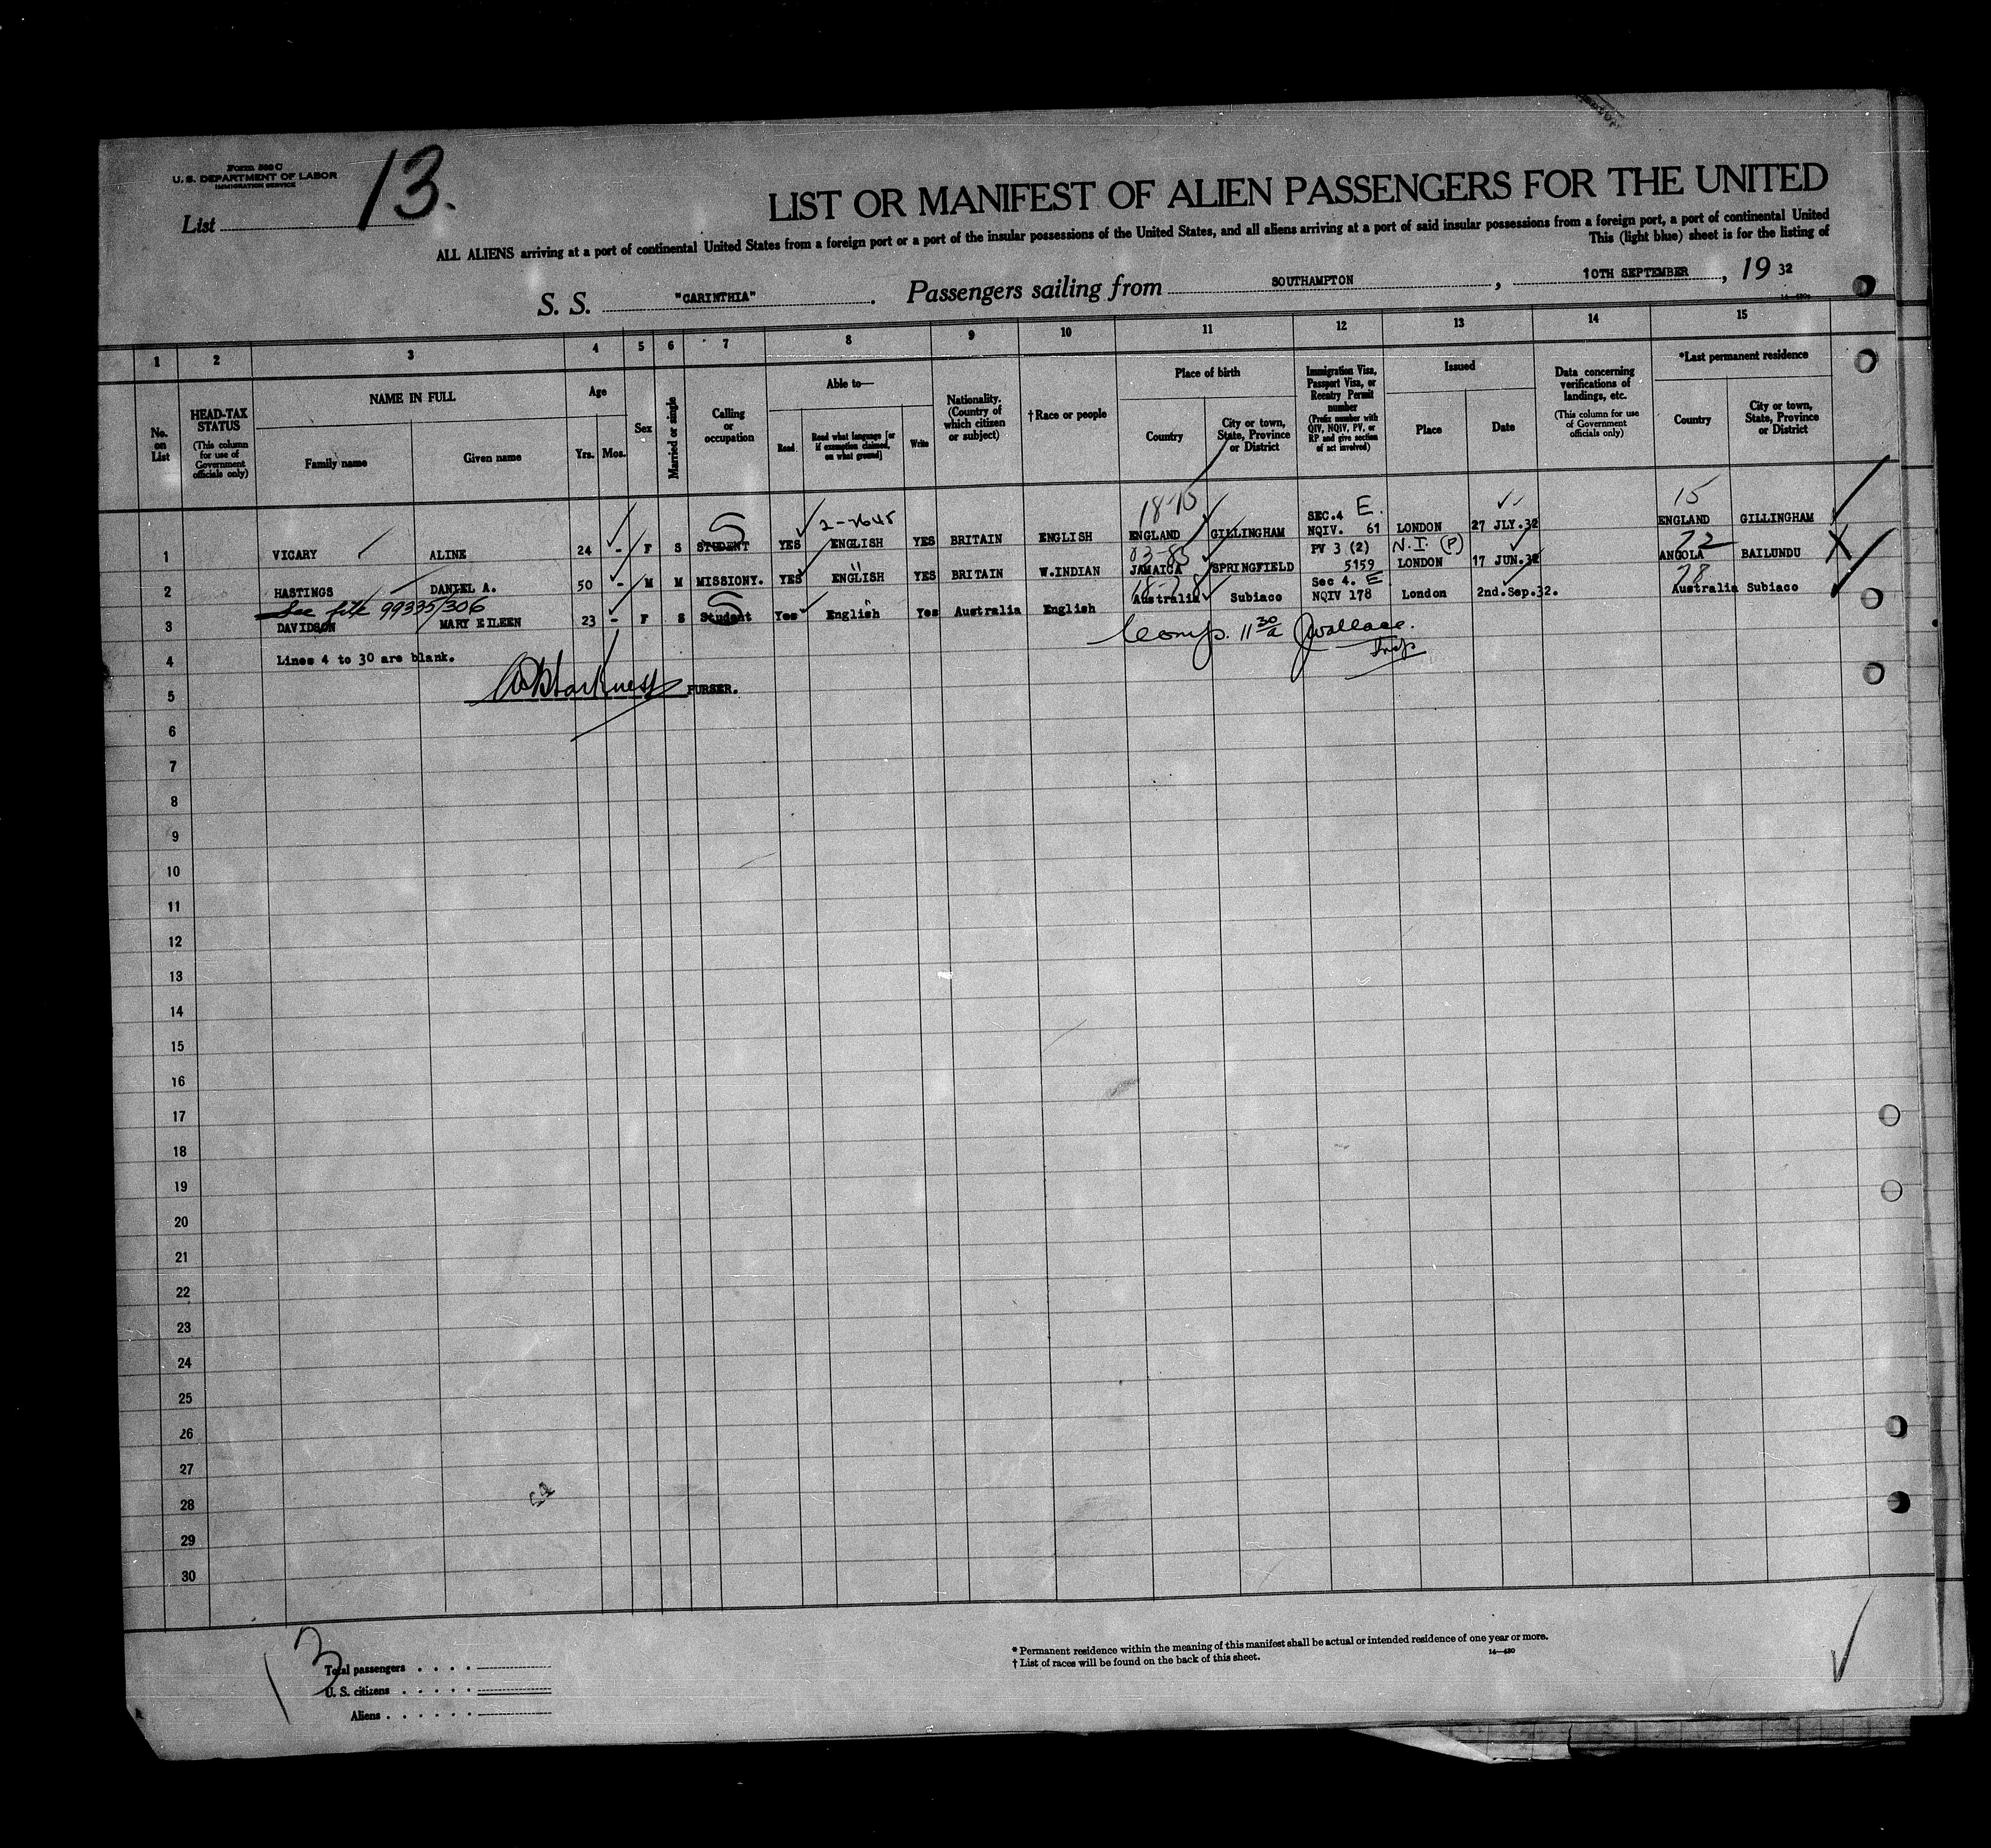 Form 500 C
U. S. DEPARTMENT OF LABOR
IMMIGRATION SERVICE
List 13.
LIST OR MANIFEST OF ALIEN PASSENGERS FOR THE UNITED
ALL ALIENS arriving at a port of continental United States from a foreign port or a port of the insular possessions of the United States, and all aliens arriving at a port of said insular possessions from a foreign port, a port of continental United
This (light blue) sheet is for the listing of
S. S. "CARINTHIA". Passengers sailing from SOUTHAMPTON, 10TH SEPTEMBER, 19 32
1 2 3 4 5 6 7 8 9 10 11 12 13 14 15
No. on List
HEAD-TAX STATUS (This column for use of Government officials only)
NAME IN FULL
Family name
Given name
Age
Yrs. Mos.
Sex
Married or single
Calling or occupation
Able to—
Read
Read what language [or if exemption claimed, on what ground]
Write
Nationality. (Country of which citizen or subject)
†Race or people
Place of birth
Country
City or town, State, Province or District
Immigration Visa, Passport Visa, or Reentry Permit number (Prefix number with QIV, NQIV, PV, or RP and give section of act involved)
Issued
Place
Date
Data concerning verifications of landings, etc. (This column for use of Government officials only)
*Last permanent residence
Country
City or town, State, Province or District
18-15 SEC.4 E. 15
1 VICARY ALINE 24 - F S STUDENT YES ENGLISH YES BRITAIN ENGLISH ENGLAND GILLINGHAM NQIV. 61 LONDON 27 JLY.32 ENGLAND GILLINGHAM
03-85 PV 3 (2) N.I. (P) 72
2 HASTINGS DANIEL A. 50 - M M MISSIONY. YES ENGLISH YES BRITAIN W.INDIAN JAMAICA SPRINGFIELD 5159 LONDON 17 JUN.32 ANGOLA BAILUNDU
See file 99335/306 18-78 Sec 4. E 78
3 DAVIDSON MARY EILEEN 23 - F S Student Yes English Yes Australia English Australia Subiaco NQIV 178 London 2nd.Sep.32. Australia Subiaco
Comp. 11 30 a JWallace. Insp
4 Lines 4 to 30 are blank.
5 PURSER.
6
7
8
9
10
11
12
13
14
15
16
17
18
19
20
21
22
23
24
25
26
27
28
29
30
13
Total passengers . . . .
U. S. citizens . . . . .
Aliens . . . . . .
* Permanent residence within the meaning of this manifest shall be actual or intended residence of one year or more.
† List of races will be found on the back of this sheet.
14—430